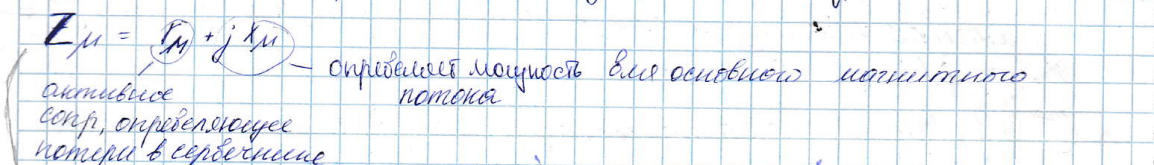 Zμ = rμ + jxμ
– определяет мощность для основного магнитного
потока
активное
сопр, определяющее
потери в сердечнике